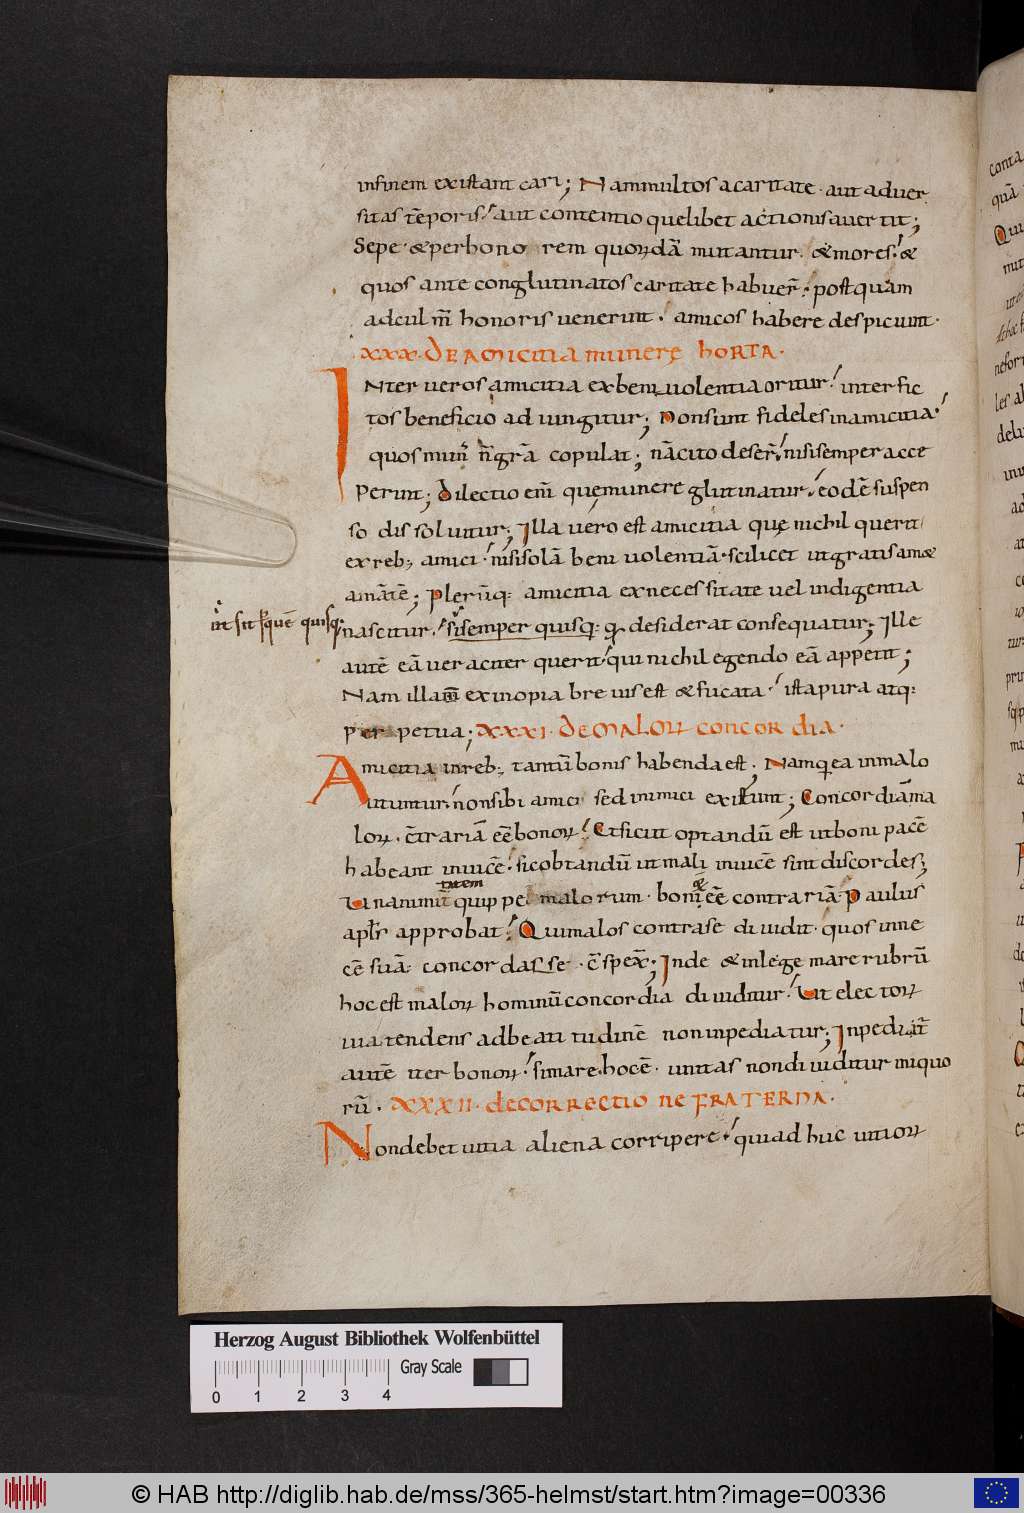 infinem existant cari; Nam multos a caritate · aut aduer
sitas tēporis! aut contentio quelibet actionis auertit;
Sepe · & per honorem quorꝝdā mutantur · & mores! &
quos ante conglutinatos caritate habuer̄ · postquam
ad culm̄ honoris uenerint · amicos habere despiciunt ·
XXX · DE AMICITIA munere horta ·
INter ueros amicitia ex beniuolentia oritur! inter fic
tos beneficio ad iungitur; Non sunt fideles in amicitia!
quos mun̄ ñ grā copulat; nā cito deser̄! nisi semper acce
perint; Dilectio eni̅ quę munere glutinatur! eodē suspen
so dissoluitur; Illa uero est amicitia quę nichil querit
ex reb; amici! nisi solā beniuolentiā · scilicet ut gratis am&
amātē; Plerūq: amicitia ex necessitate uel indigentia
int̄ sit s; quē quisq:
nascitur! si semper quisq: qđ desiderat consequatur; Ille
autē eā ueraciter querit! qui nichil egendo eā appetit;
Nam illam̄ ex inopia breuis est & fucata! ista pura atq:
perpetua; XXXI · DE MALORꝝ concordia ·
Amicitia in reb; tantū bonis habenda est; Namq ea in malo
utuntur! non sibi amici sed inimici existunt; Concordiā ma
lorꝝ · c̄trariā eē bonorꝝ! Et sicut optandū est ut boni pacē
habeant inuicē · sic obtandū ut mali inuicē sint discordes;
tatem
Unanimit̄ quippe malorum · boni & eē contrariā · Paulus
apl̄s approbat! Qui malos contra se diuidit · quos inne
cē suā concordasse · c̄spex̄; Inde & in lege mare rubrū
hoc est malorꝝ hominū concordia diuiditur! Ut electorꝝ
uia tendens ad beatitudinē non inpediatur; Inpedit̄
autē iter bonorꝝ! si mare · hoc ē · unitas non diuiditur iniquo
rū · XXXII · de correctione FRATERNA ·
Non debet uitia aliena corripere! qui adhuc uitiorꝝ
Herzog August Bibliothek Wolfenbüttel
0 1 2 3 4
Gray Scale
© HAB http://diglib.hab.de/mss/365-helmst/start.htm?image=00336